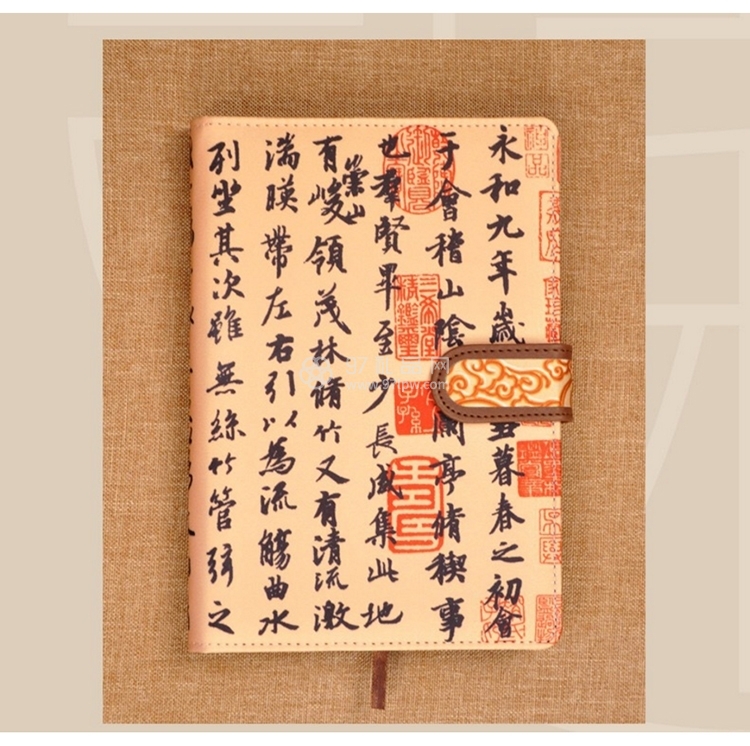 永和九年歲丑暮春之初會
于會稽山陰蘭亭脩禊事
也羣賢畢至少長咸集此地
有崇山峻領茂林脩竹又有清流激
湍暎帶左右引以為流觴曲水
列坐其次雖無絲竹管弦之
三希堂
精鑑璽